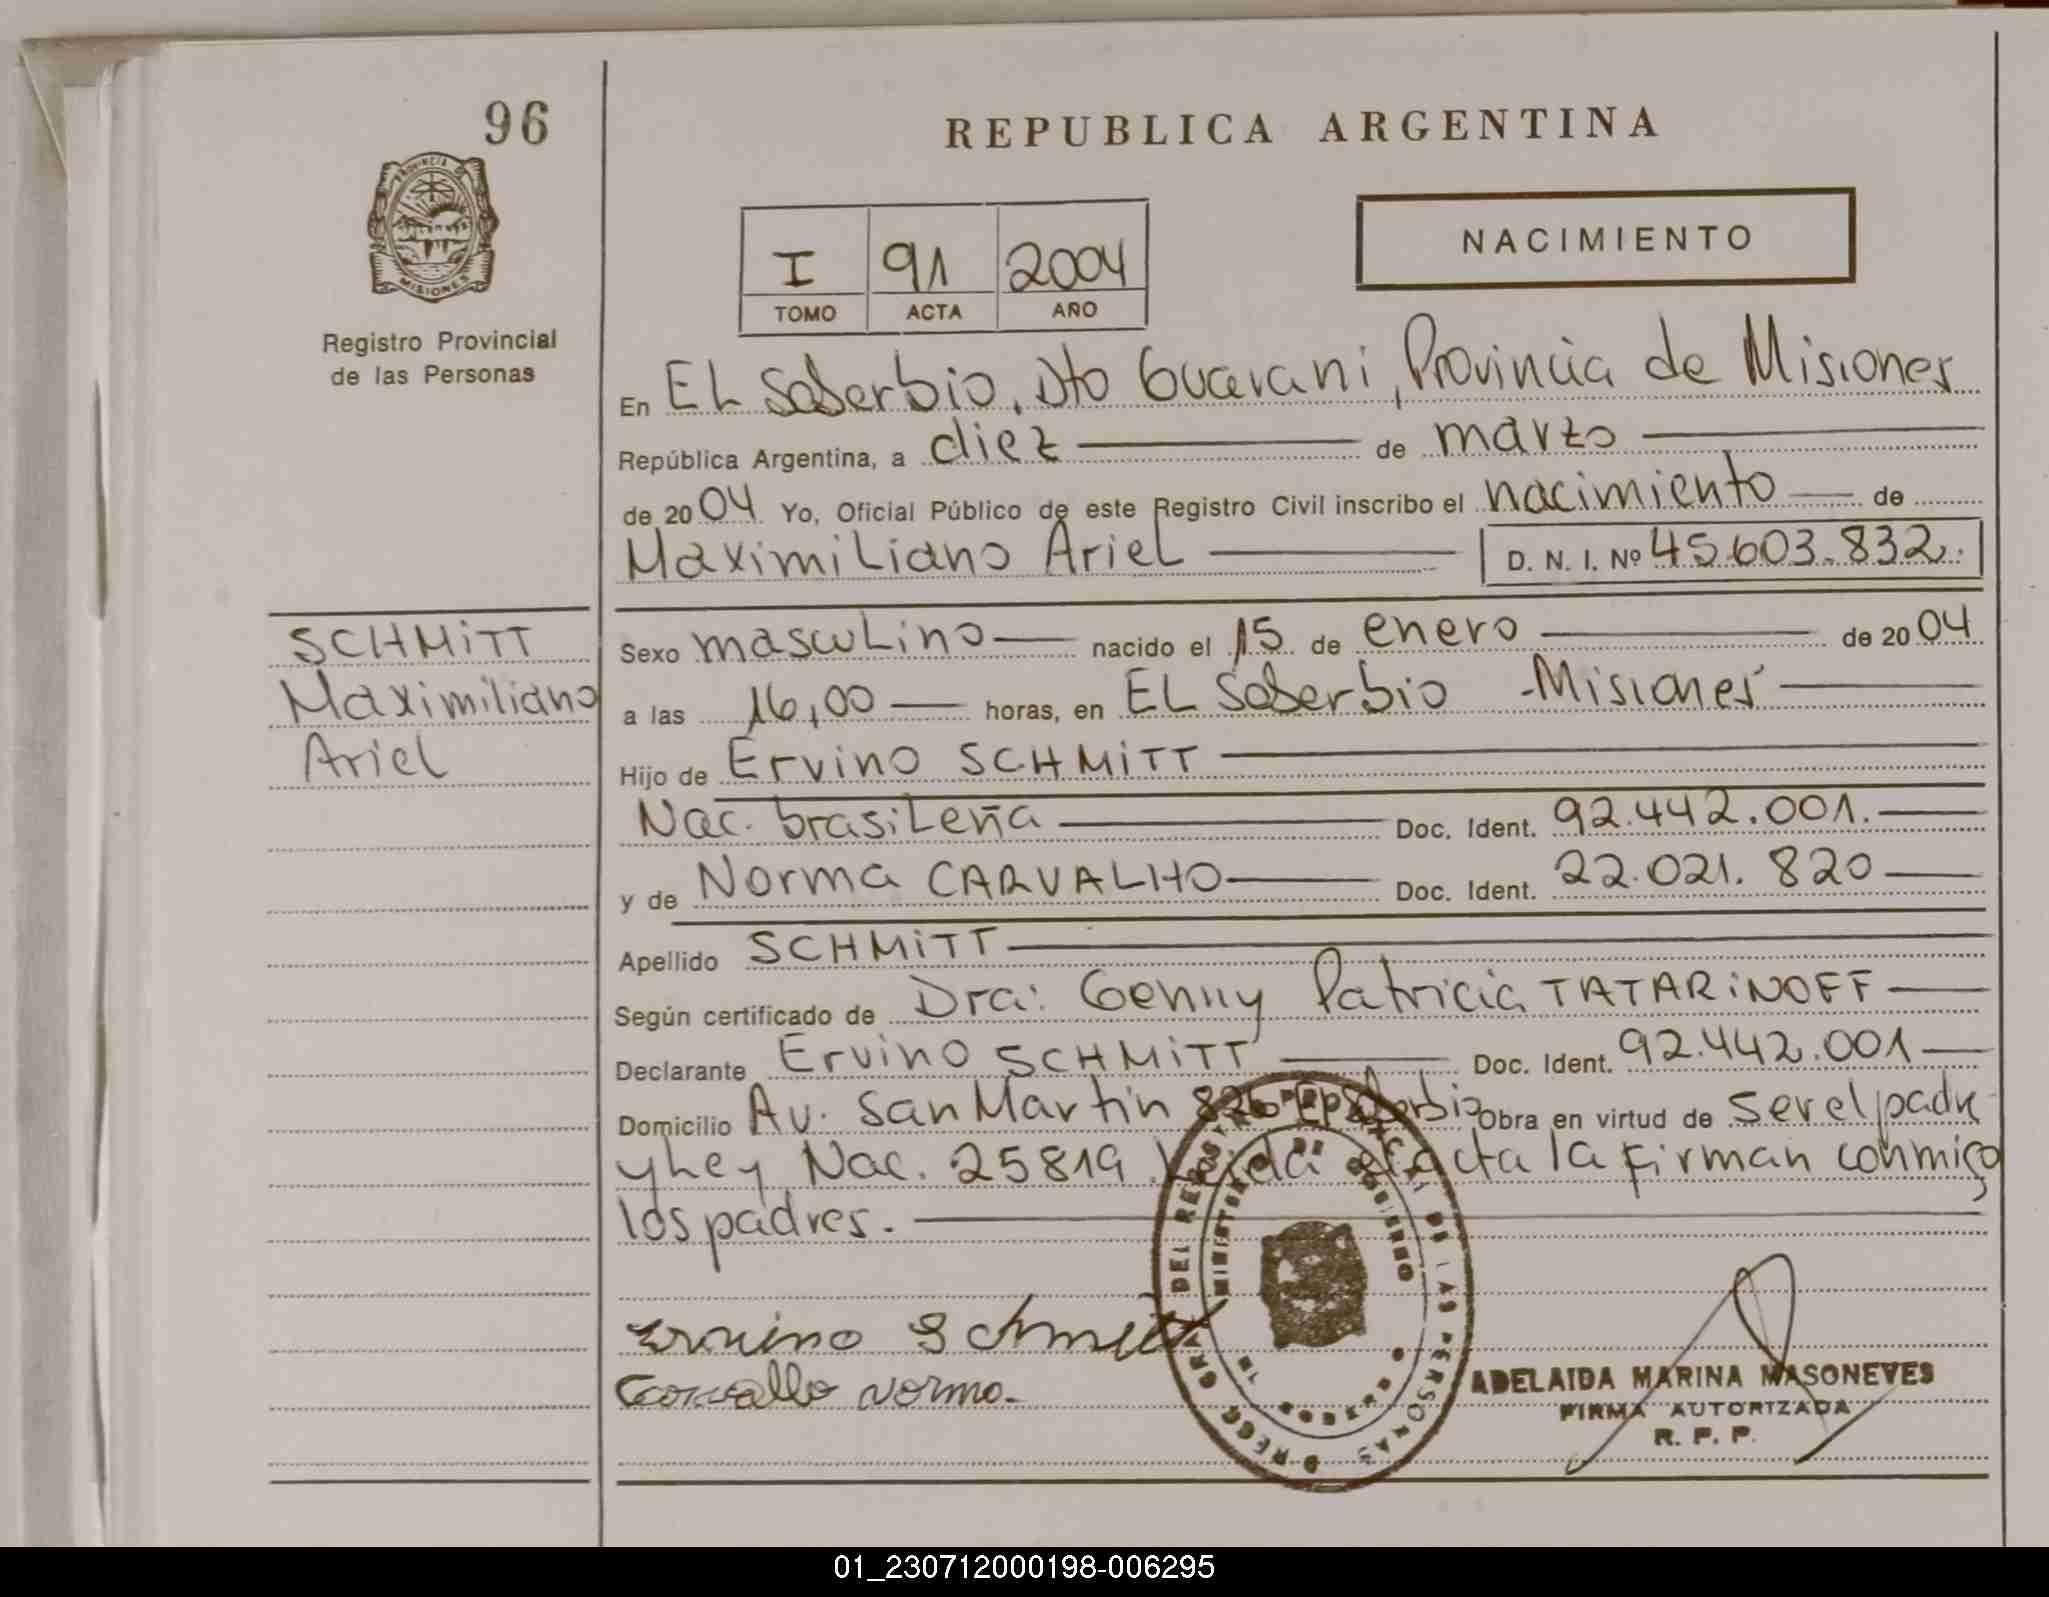 96
REPUBLICA ARGENTINA
PROVINCIA DE
MISIONES
Registro Provincial
de las Personas
I 91 2004
TOMO ACTA AÑO
NACIMIENTO
En EL Soberbio, Dto Guarani, Provincia de Misiones
República Argentina, a diez de marzo
de 2004 Yo, Oficial Público de este Registro Civil inscribo el nacimiento de
Maximiliano Ariel D. N. I. Nº 45.603.832.
SCHMITT
Maximiliano
Ariel
Sexo masculino nacido el 15 de enero de 2004
a las 16,00 horas, en EL Soberbio - Misiones
Hijo de Ervino SCHMITT
Nac. brasileña Doc. Ident. 92.442.001.
y de Norma CARVALHO Doc. Ident. 22.021.820
Apellido SCHMITT
Según certificado de Dra: Genny Patricia TATARINOFF
Declarante Ervino SCHMITT Doc. Ident. 92.442.001
Domicilio Av. San Martin 826 Soberbio Obra en virtud de ser el padre
y Ley Nac. 25819. Leida el acta la firman conmigo
los padres.
Ervino Schmitt
Carvallo Norma.
MINISTERIO DE GOBIERNO
DEL REGISTRO PROVINCIAL DE LAS PERSONAS
ADELAIDA MARINA MASONEVES
FIRMA AUTORIZADA
R. P. P.
01_230712000198-006295